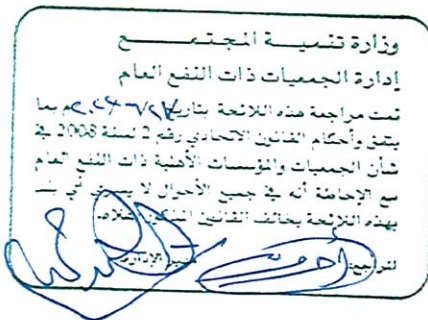 وزارة تنميـــة المجتمـــــــع
إدارة الجمعيات ذات النفع العام
تمت مراجعة هذه اللائحة بتاريخ م بما
يتفق وأحكام القانون الاتحادي رقم 2 لسنة 2008 في
شأن الجمعيات والمؤسسات الأهلية ذات النفع العام
مع الإحاطة أنه في جميع الأحوال لا يسري أي بند
بهذه اللائحة يخالف القانون المذكور أعلاه.
مدير الإدارة